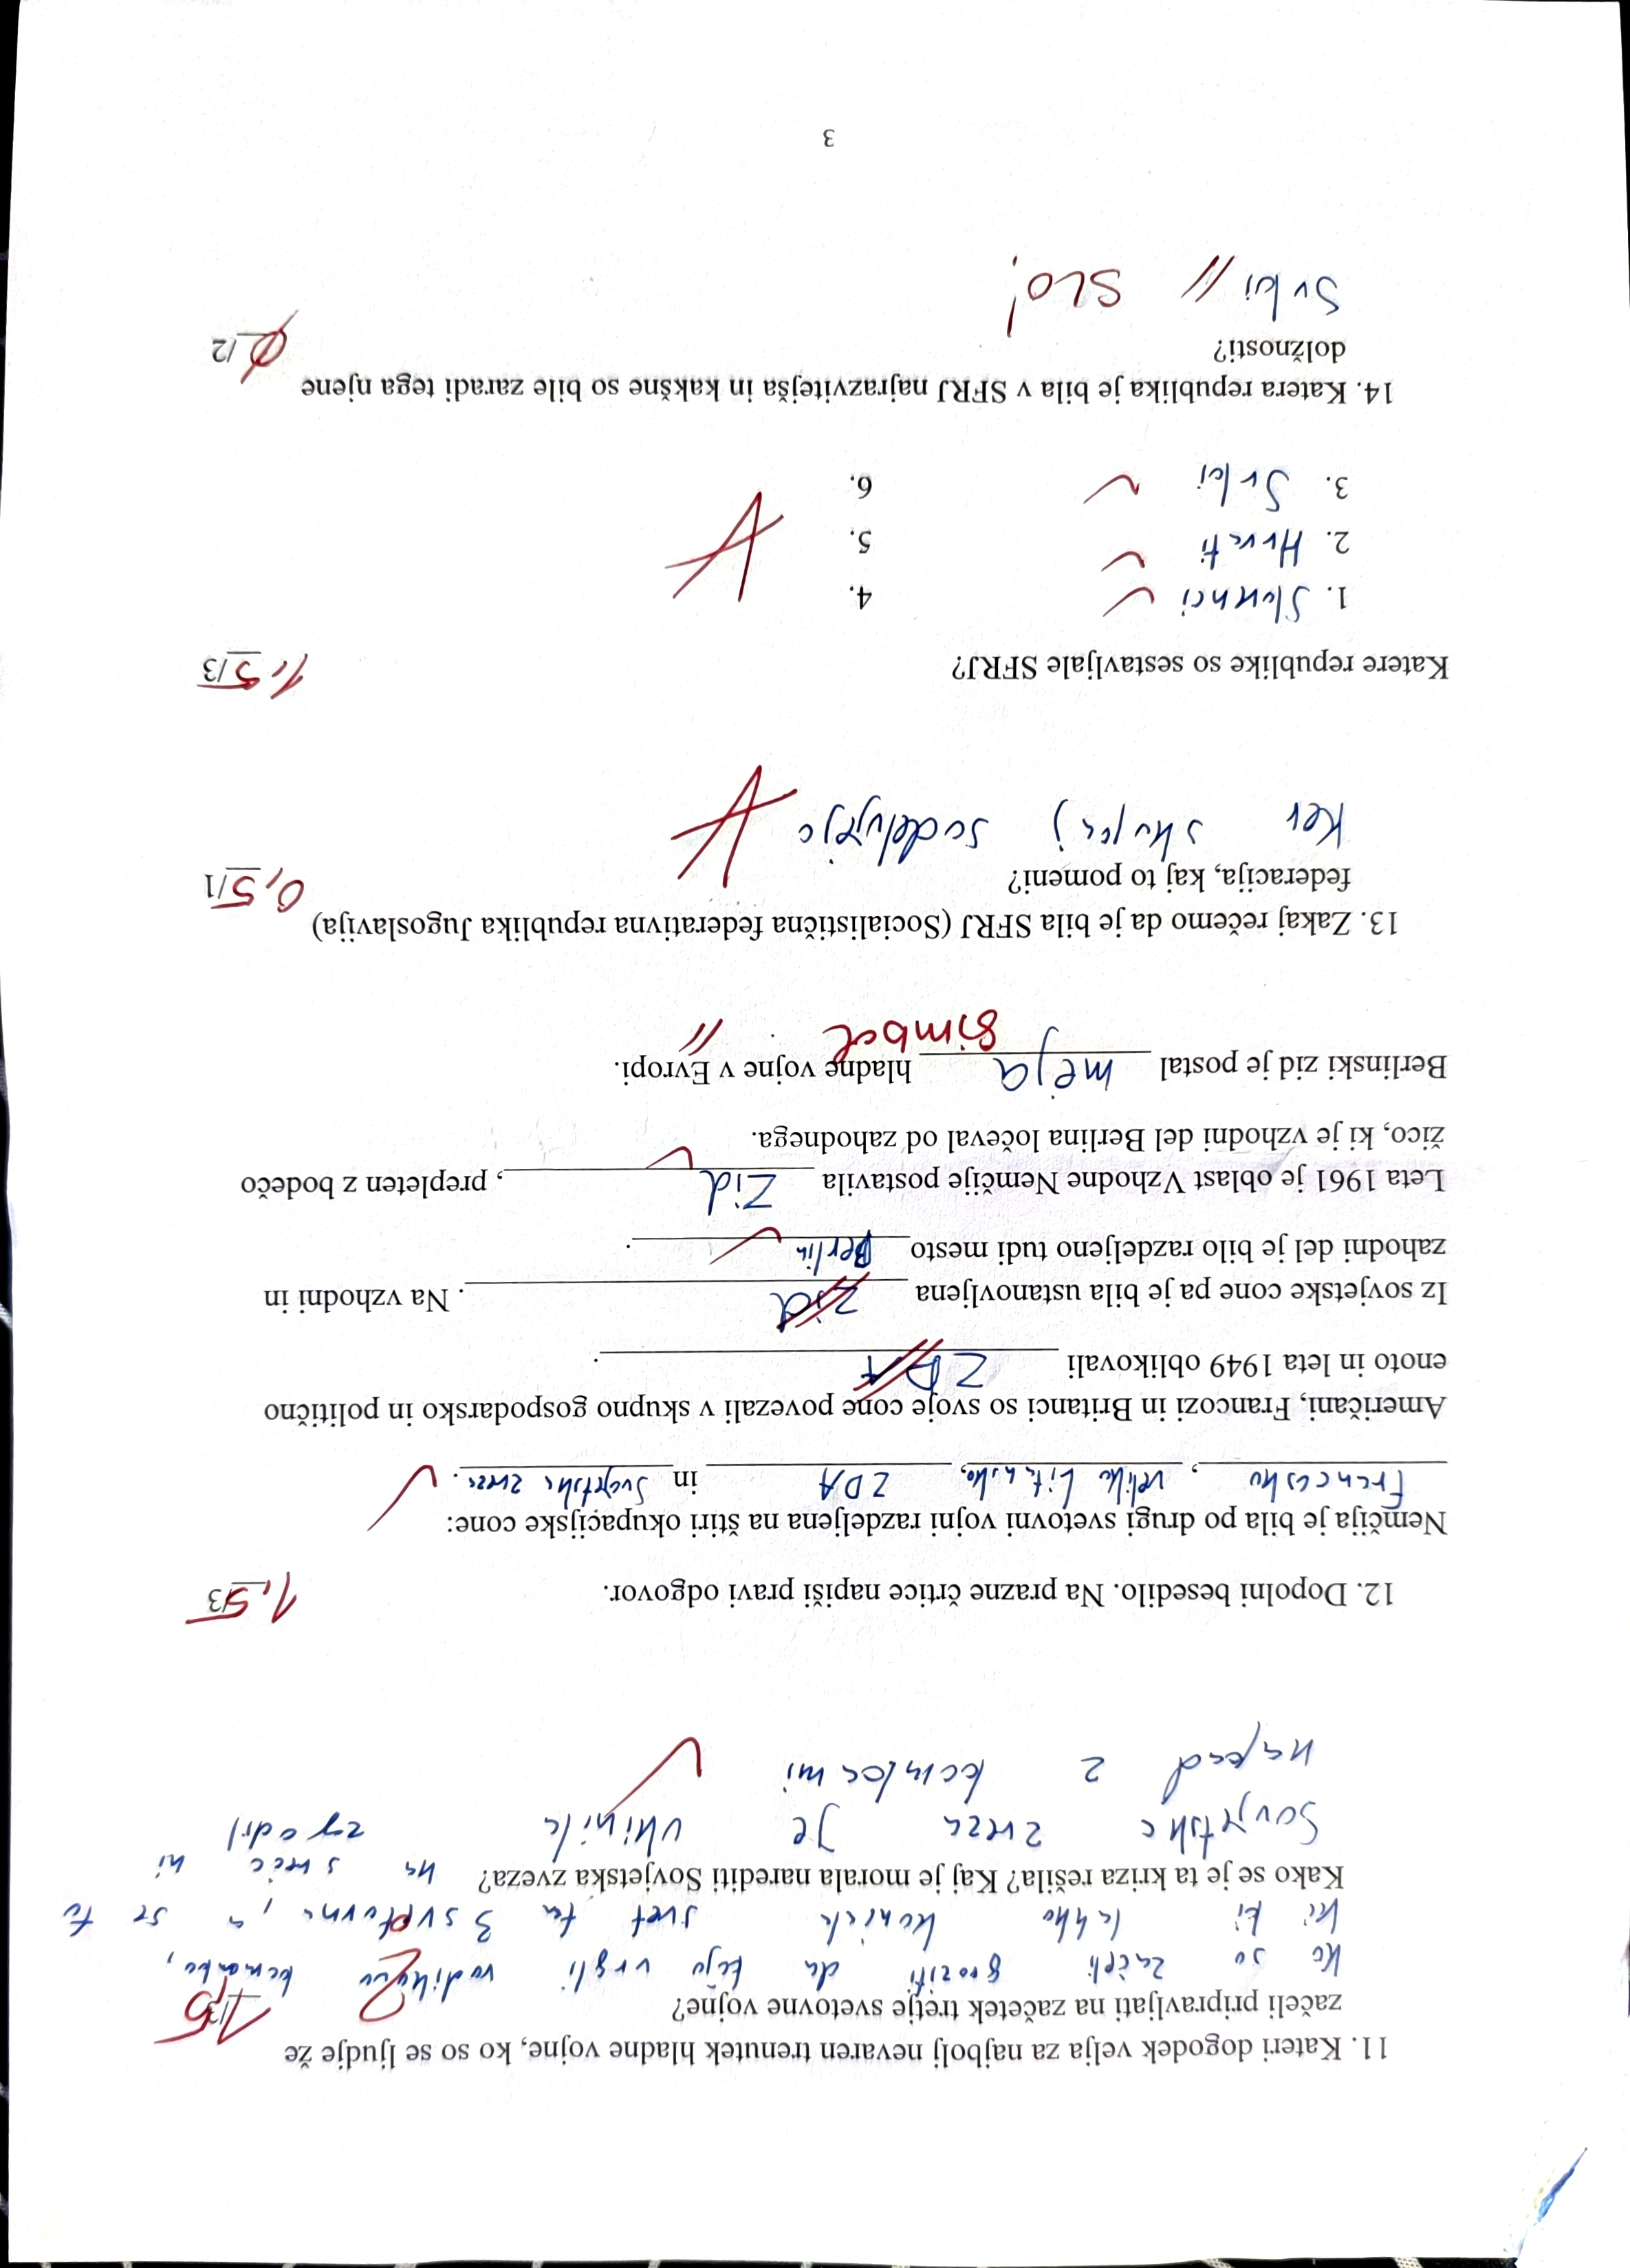 11. Kateri dogodek velja za najbolj nevaren trenutek hladne vojne, ko so se ljudje že
začeli pripravljati na začetek tretje svetovne vojne? 1,5/3
Ko so začeli groziti da bojo vrgli vodikovo bombo,
ki bi lahko svet ta 3 svetovna, se to
Kako se je ta kriza rešila? Kaj je morala narediti Sovjetska zveza? na srečo ni
zgodil
Sovjetska zveza je ukinila
napad z bombami
12. Dopolni besedilo. Na prazne črtice napiši pravi odgovor. 1,5/3
Nemčija je bila po drugi svetovni vojni razdeljena na štiri okupacijske cone:
Francosko, veliko Britansko, ZDA in Sovjetska zveza.
Američani, Francozi in Britanci so svoje cone povezali v skupno gospodarsko in politično
enoto in leta 1949 oblikovali ZDA.
Iz sovjetske cone pa je bila ustanovljena zid. Na vzhodni in
zahodni del je bilo razdeljeno tudi mesto Berlin.
Leta 1961 je oblast Vzhodne Nemčije postavila Zid, prepleten z bodečo
žico, ki je vzhodni del Berlina ločeval od zahodnega.
Berlinski zid je postal meja hladne vojne v Evropi.
simbol
13. Zakaj rečemo da je bila SFRJ (Socialistična federativna republika Jugoslavija)
federacija, kaj to pomeni? 0,5/1
Ker skupaj sodelujejo
Katere republike so sestavljale SFRJ? 1,5/3
1. Slovenci 4.
2. Hrvati 5.
3. Srbi 6.
14. Katera republika je bila v SFRJ najrazvitejša in kakšne so bile zaradi tega njene
dolžnosti? 0/2
Srbi SLO!
3